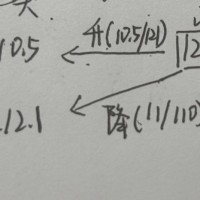 10.5 升(10.5/121) 12
12.1 降(11/110)